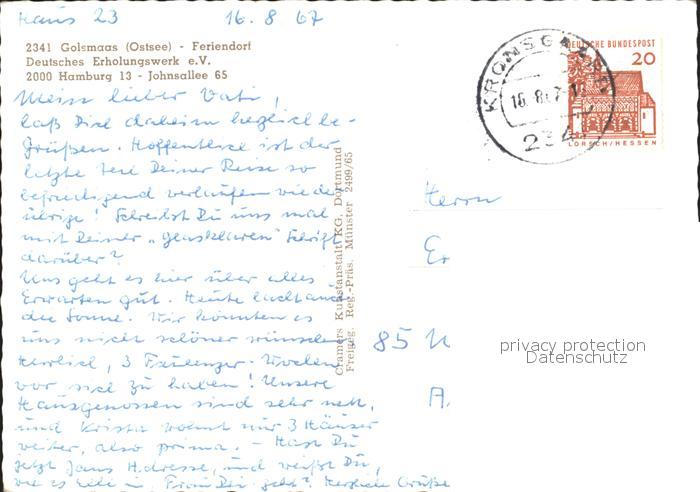 Haus 23 16. 8. 67
2341 Golsmaas (Ostsee) - Feriendorf
Deutsches Erholungswerk e.V.
2000 Hamburg 13 - Johnsallee 65
Mein lieber Vati,
laß Dich daheim herzlich be-
grüßen. Hoffentlich ist der
letzte Teil Deiner Reise so
befriedigend verlaufen wie der
übrige! Schreibst Du uns mal
mit Deiner "glasklaren" Schrift
darüber?
Uns geht es hier über alles
Erwarten gut. Heute lacht auch
die Sonne. Wir könnten es
uns nicht schöner wünschen.
Herrlich, 3 Wochen
vor sich zu haben! Unsere
Hausgenossen sind sehr nett,
und Krista wohnt nur 3 Häuser
weiter, also prima. - Hast Du
jetzt Jans Adresse, und weißt Du,
wie es in geht? Herzliche Grüße
Cramers Kunstanstalt KG, Dortmund
Freigeg. Reg.-Präs. Münster 2499/65
KRONSGAARD
16.8.67
234
DEUTSCHE BUNDESPOST
20
LORSCH/HESSEN
Herrn
Er
85 N
A.
privacy protection
Datenschutz